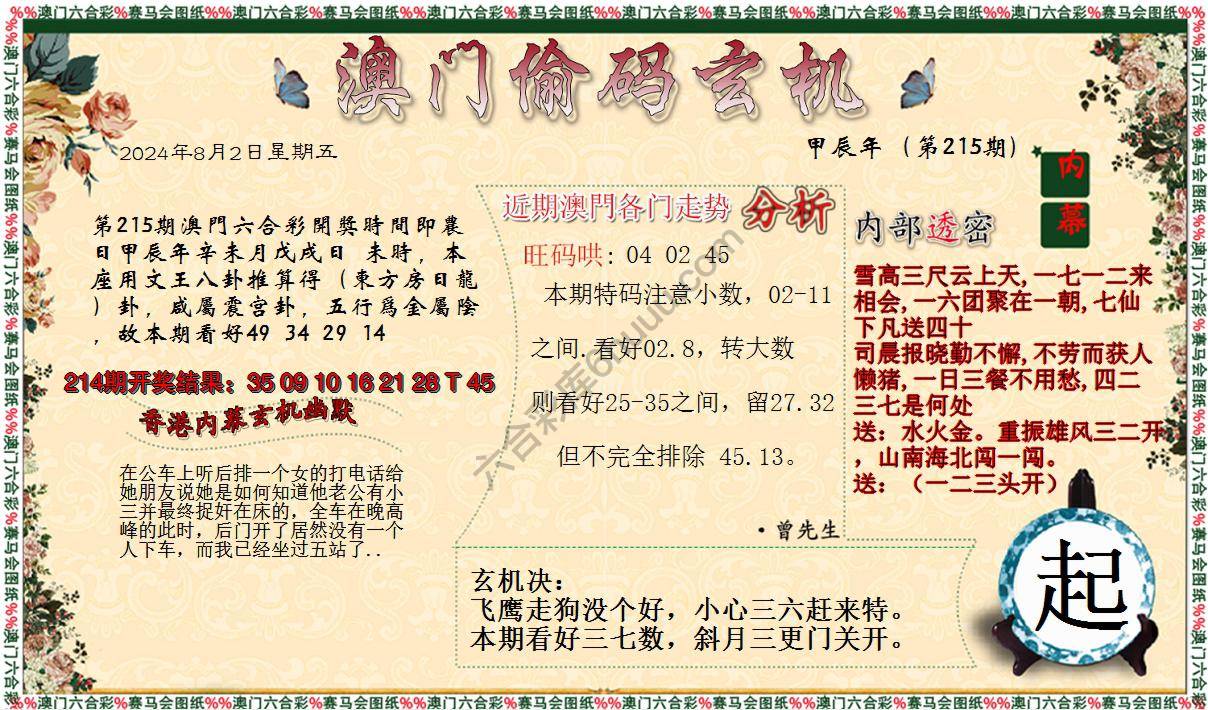 %%澳门六合彩%赛马会图纸%%澳门六合彩%赛马会图纸%%澳门六合彩%赛马会图纸%%澳门六合彩%赛马会图纸%%澳门六合彩%赛马会图纸%%澳门六合彩%赛马会图纸%%
澳门偷码玄机
2024年8月2日星期五
甲辰年（第215期）
内
幕
第215期澳門六合彩開獎時間即農
日甲辰年辛未月戊戌日 未時，本
座用文王八卦推算得（東方房日龍
）卦，咸屬震宫卦，五行爲金屬陰
，故本期看好49 34 29 14
214期开奖结果：35 09 10 16 21 28 T 45
香港内幕玄机幽默
在公车上听后排一个女的打电话给
她朋友说她是如何知道他老公有小
三并最终捉奸在床的，全车在晚高
峰的此时，后门开了居然没有一个
人下车，而我已经坐过五站了..
近期澳門各门走势 分析
旺码哄: 04 02 45
本期特码注意小数，02-11
之间.看好02.8，转大数
则看好25-35之间，留27.32
但不完全排除 45.13。
·曾先生
内部透密
雪高三尺云上天,一七一二来
相会,一六团聚在一朝,七仙
下凡送四十
司晨报晓勤不懈,不劳而获人
懒猪,一日三餐不用愁,四二
三七是何处
送：水火金。重振雄风三二开
，山南海北闯一闯。
送：（一二三头开）
玄机决：
飞鹰走狗没个好，小心三六赶来特。
本期看好三七数，斜月三更门关开。
起
%%澳门六合彩%赛马会图纸%%澳门六合彩%赛马会图纸%%澳门六合彩%赛马会图纸%%澳门六合彩%赛马会图纸%%澳门六合彩%赛马会图纸%%澳门六合彩%赛马会图纸%%